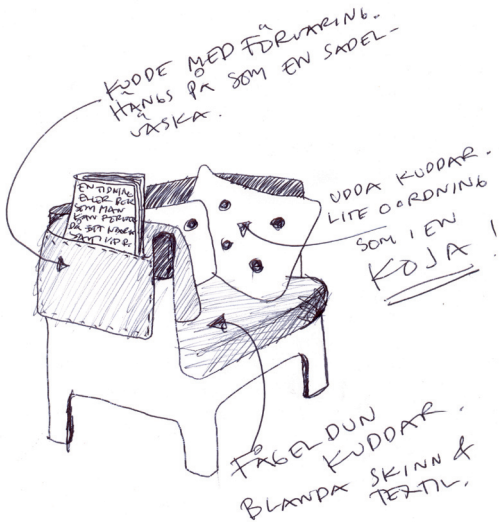 KUDDE MED FÖRVARING.
HÄNGS PÅ SOM EN SADEL-
VÄSKA.
EN TIDNING
ELLER BOK
SOM MAN
KAN
PÅ ETT
UDDA KUDDAR.
LITE OORDNING
SOM I EN
KOJA!
FÅGELDUN
KUDDAR.
BLANDA SKINN &
TEXTIL.